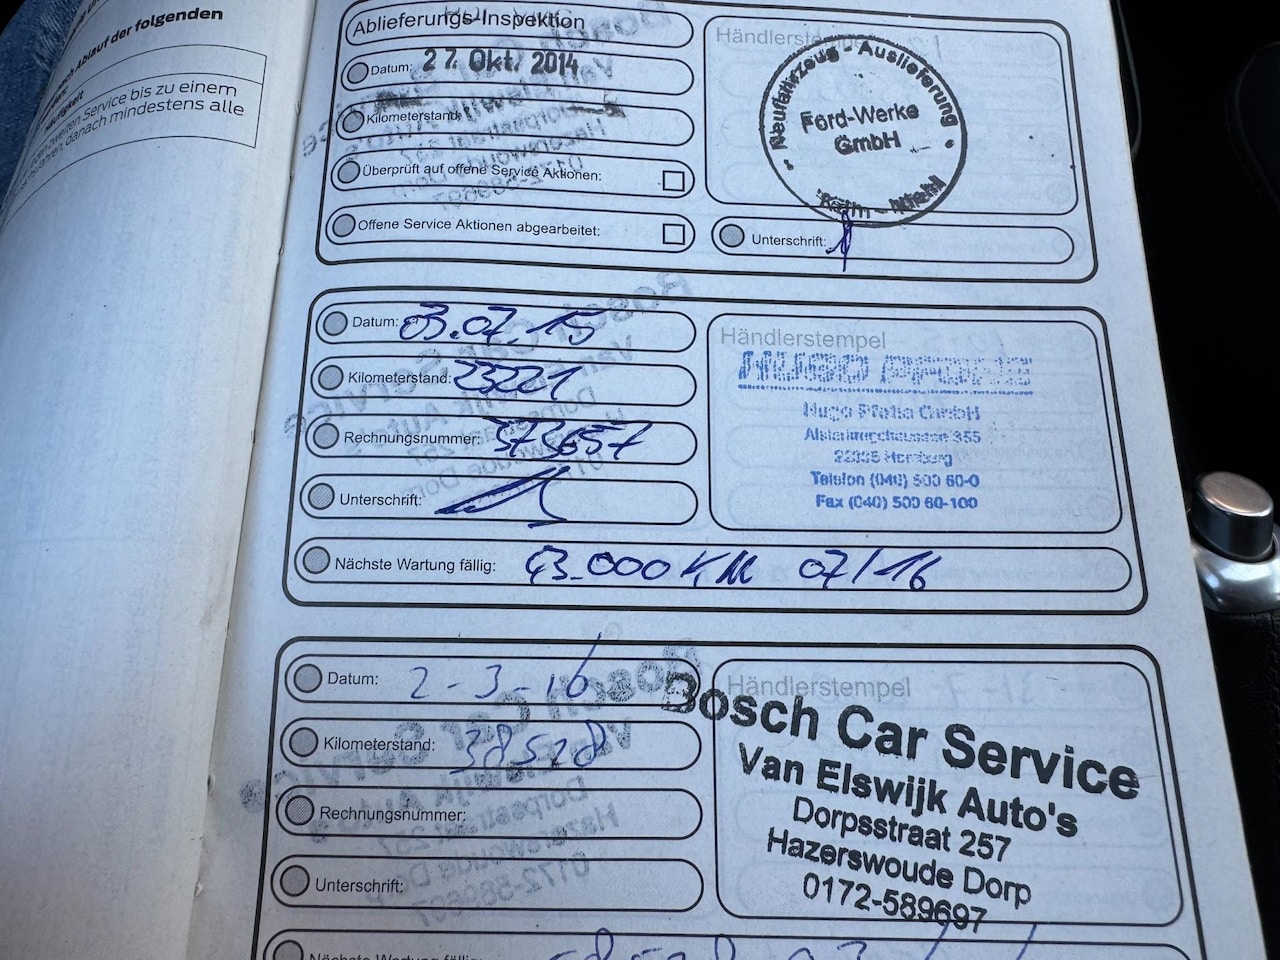 Ablauf der folgenden
zweiten Service bis zu einem
danach mindestens alle
Ablieferungs-Inspektion
Datum: 27. Okt. 2014
Kilometerstand:
Überprüft auf offene Service Aktionen:
Offene Service Aktionen abgearbeitet:
Neufahrzeug - Auslieferung
Ford-Werke
GmbH
Köln - Niehl
Unterschrift:
Datum: 03.07.15
Kilometerstand: 23221
Rechnungsnummer: 373657
Unterschrift:
Händlerstempel
HUGO PFOHE
Hugo Pfohe GmbH
Alsterkrugchaussee 355
22335 Hamburg
Telefon (040) 500 60-0
Fax (040) 500 60-100
Nächste Wartung fällig: 43.000 KM 07/16
Datum: 2-3-16
Kilometerstand: 38528
Rechnungsnummer:
Unterschrift:
Händlerstempel
Bosch Car Service
Van Elswijk Auto's
Dorpsstraat 257
Hazerswoude Dorp
0172-589697
Nächste Wartung fällig: